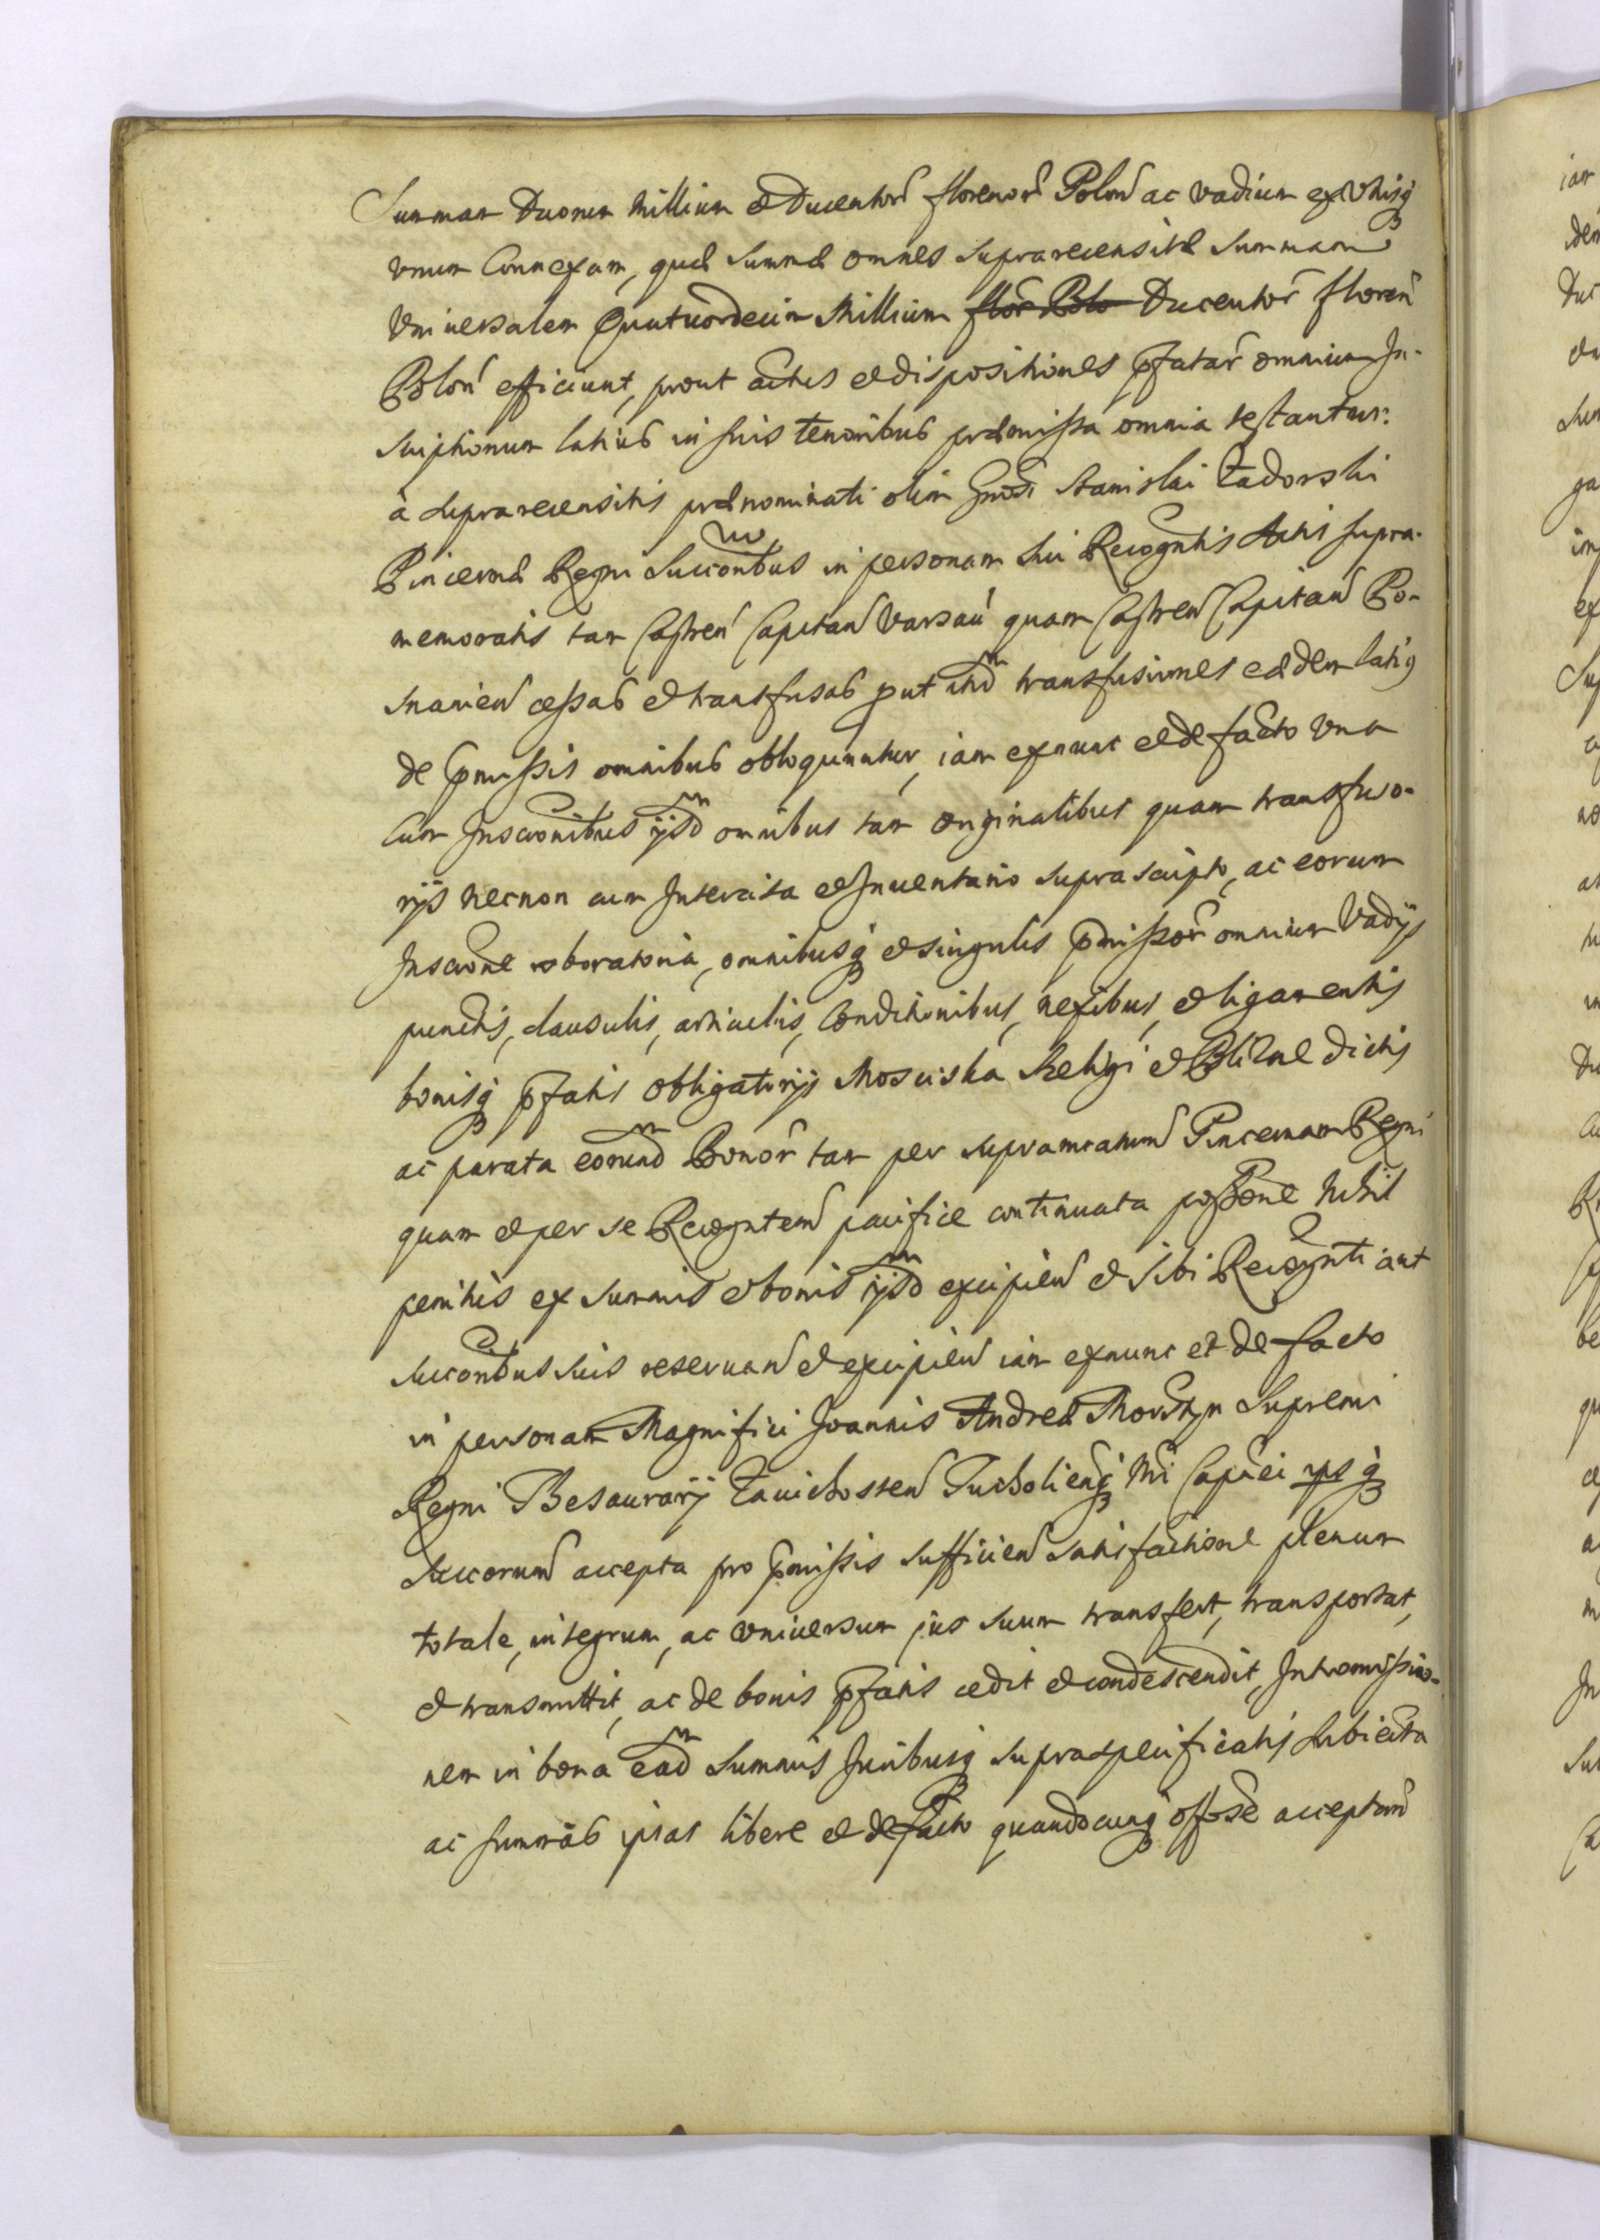 Summam Duorum Millium et Ducentor florenor Polon ac vadium ex Vtrisq
vnum Connexam, quae Summae omnes suprarecensitae Summam
Vniuersalem Quatuordecim Millium flor Polo Ducentor floren
Polon efficiunt, prout actus et dispositiones pfatar omnium In-
scriptionum latius in suis tenoribus praemissa omnia testantur:
à suprarecensitis praenominati olim Gnosi Stanislai Zadorski
Pincernae Regni Succoribus in personam sui Recogntis Actis supra-
memoratis tam Castren Capitan Varsau quam Castren Capitan Po-
snanien cessas et transfusas put ibid transfusiones eaedem latiq
de pmissis omnibus obloquuntur, iam exnunc et de facto vna
Cum Inscronibus ijsd omnibus tam originalibus quam transfuso-
rijs necnon cum Intercisa et Inuentario suprascripto, ac eorum
Inscrone roboratoria, omnibusq et singulis pmissor omnium Vadijs
punctis, clausulis, articulis, Conditionibus, nexibus, et ligamentis
bonisq pfatis obligatorijs Mosciska Szeligi et Blizne dictis
ac parata eorund Bonor tam per supramratum Pincernam Regni
quam et per se Recogntem pacifice continuata possone Nihil
penitus ex summis et bonis ijsd excipien et sibi Recognti aut
succoribus suis reseruan et excipien iam exnunc et de facto
in personam Magnifici Joannis Andreae Morsztyn Supremi
Regni Thesaurarij Zauichosten Tucholiensq Mri Capnei ipsq
Succorum accepta pro pmissis sufficien satisfactione plenum
totale, integrum, ac vniuersum jus suum transfert, transportat,
et transmittit, ac de bonis pfatis cedit et condescendit, Intromissio-
nem in bona ead Summis Juribusq supraspecificatis subiecta
ac summas ipsas libere et de facto quandocunq offose acceptan